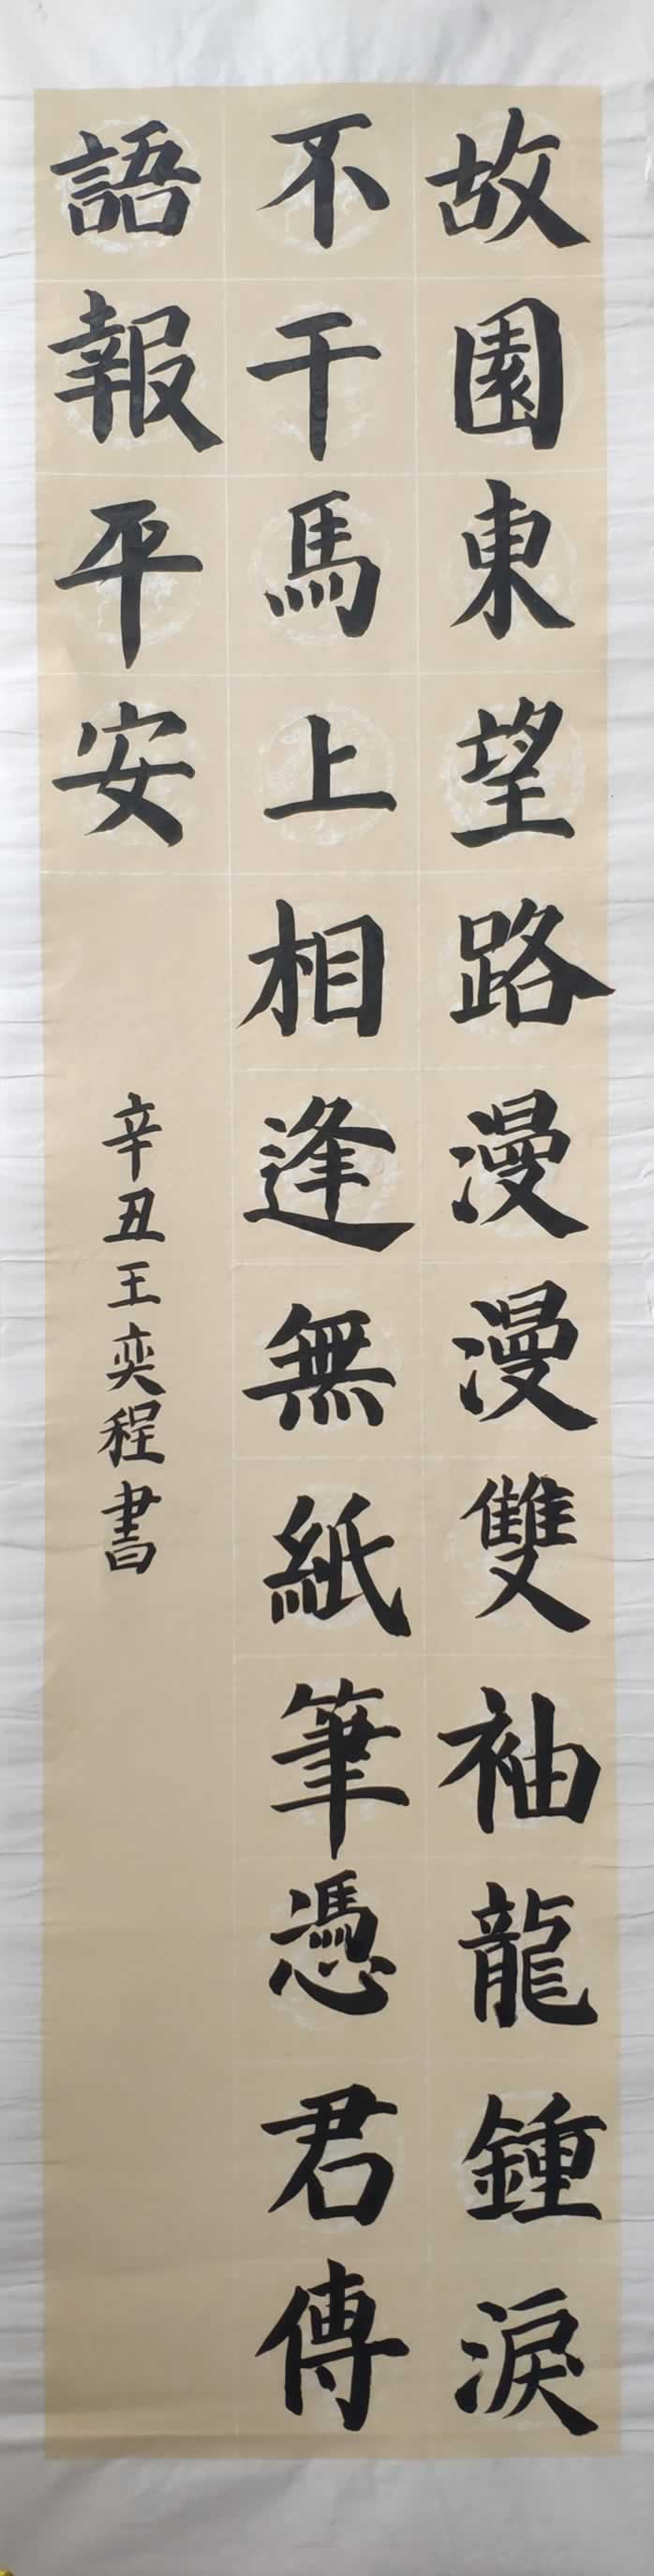 故園東望路漫漫雙袖龍鍾淚
不干馬上相逢無紙筆憑君傳
語報平安
辛丑王奕程書